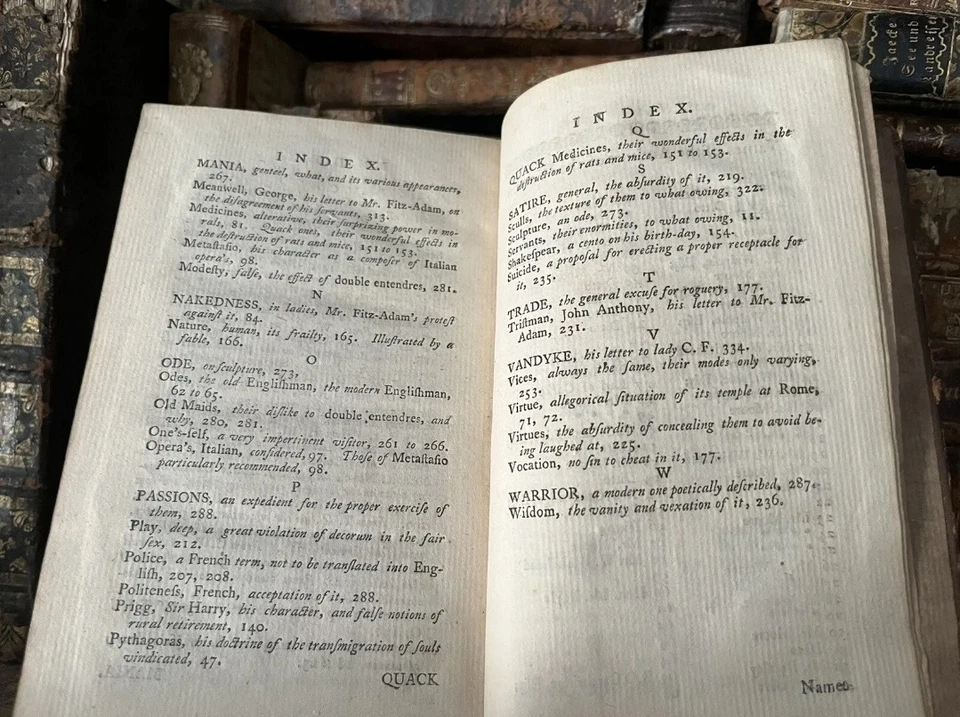 INDEX.
MANIA, genteel, what, and its various appearances,
267.
Meanwell, George, his letter to Mr. Fitz-Adam, on
the diſagreement of his ſervants, 313.
Medicines, alterative, their ſurprizing power in mo-
rals, 81. Quack ones, their wonderful effects in
the deſtruction of rats and mice, 151 to 153.
Metaſtaſio, his character as a compoſer of Italian
opera's, 98.
Modeſty, falſe, the effect of double entendres, 281.
N
NAKEDNESS, in ladies, Mr. Fitz-Adam's proteſt
againſt it, 84.
Nature, human, its frailty, 165. Illuſtrated by a
fable, 166.
O
ODE, on ſculpture, 273,
Odes, the old Engliſhman, the modern Engliſhman,
62 to 65.
Old Maids, their diſlike to double entendres, and
why, 280, 281.
One's-ſelf, a very impertinent viſitor, 261 to 266.
Opera's, Italian, conſidered, 97. Thoſe of Metaſtaſio
particularly recommended, 98.
P
PASSIONS, an expedient for the proper exerciſe of
them, 288.
Play, deep, a great violation of decorum in the fair
ſex, 212.
Police, a French term, not to be tranſlated into Eng-
liſh, 207, 208.
Politeneſs, French, acceptation of it, 288.
Prigg, Sir Harry, his character, and falſe notions of
rural retirement, 140.
Pythagoras, his doctrine of the tranſmigration of ſouls
vindicated, 47.
QUACK
INDEX.
Q
QUACK Medicines, their wonderful effects in the
deſtruction of rats and mice, 151 to 153.
S
SATIRE, general, the abſurdity of it, 219.
Sculls, the texture of them to what owing, 322.
Sculpture, an ode, 273.
Servants, their enormities, to what owing, 11.
Shakeſpear, a cento on his birth-day, 154.
Suicide, a propoſal for erecting a proper receptacle for
it, 235.
T
TRADE, the general excuſe for roguery, 177.
Triſtman, John Anthony, his letter to Mr. Fitz-
Adam, 231.
V
VANDYKE, his letter to lady C. F. 334.
Vices, always the ſame, their modes only varying,
253.
Virtue, allegorical ſituation of its temple at Rome,
71, 72.
Virtues, the abſurdity of concealing them to avoid be-
ing laughed at, 225.
Vocation, no ſin to cheat in it, 177.
W
WARRIOR, a modern one poetically deſcribed, 287.
Wiſdom, the vanity and vexation of it, 236.
Names
Jaecke
See und
Landreiſen